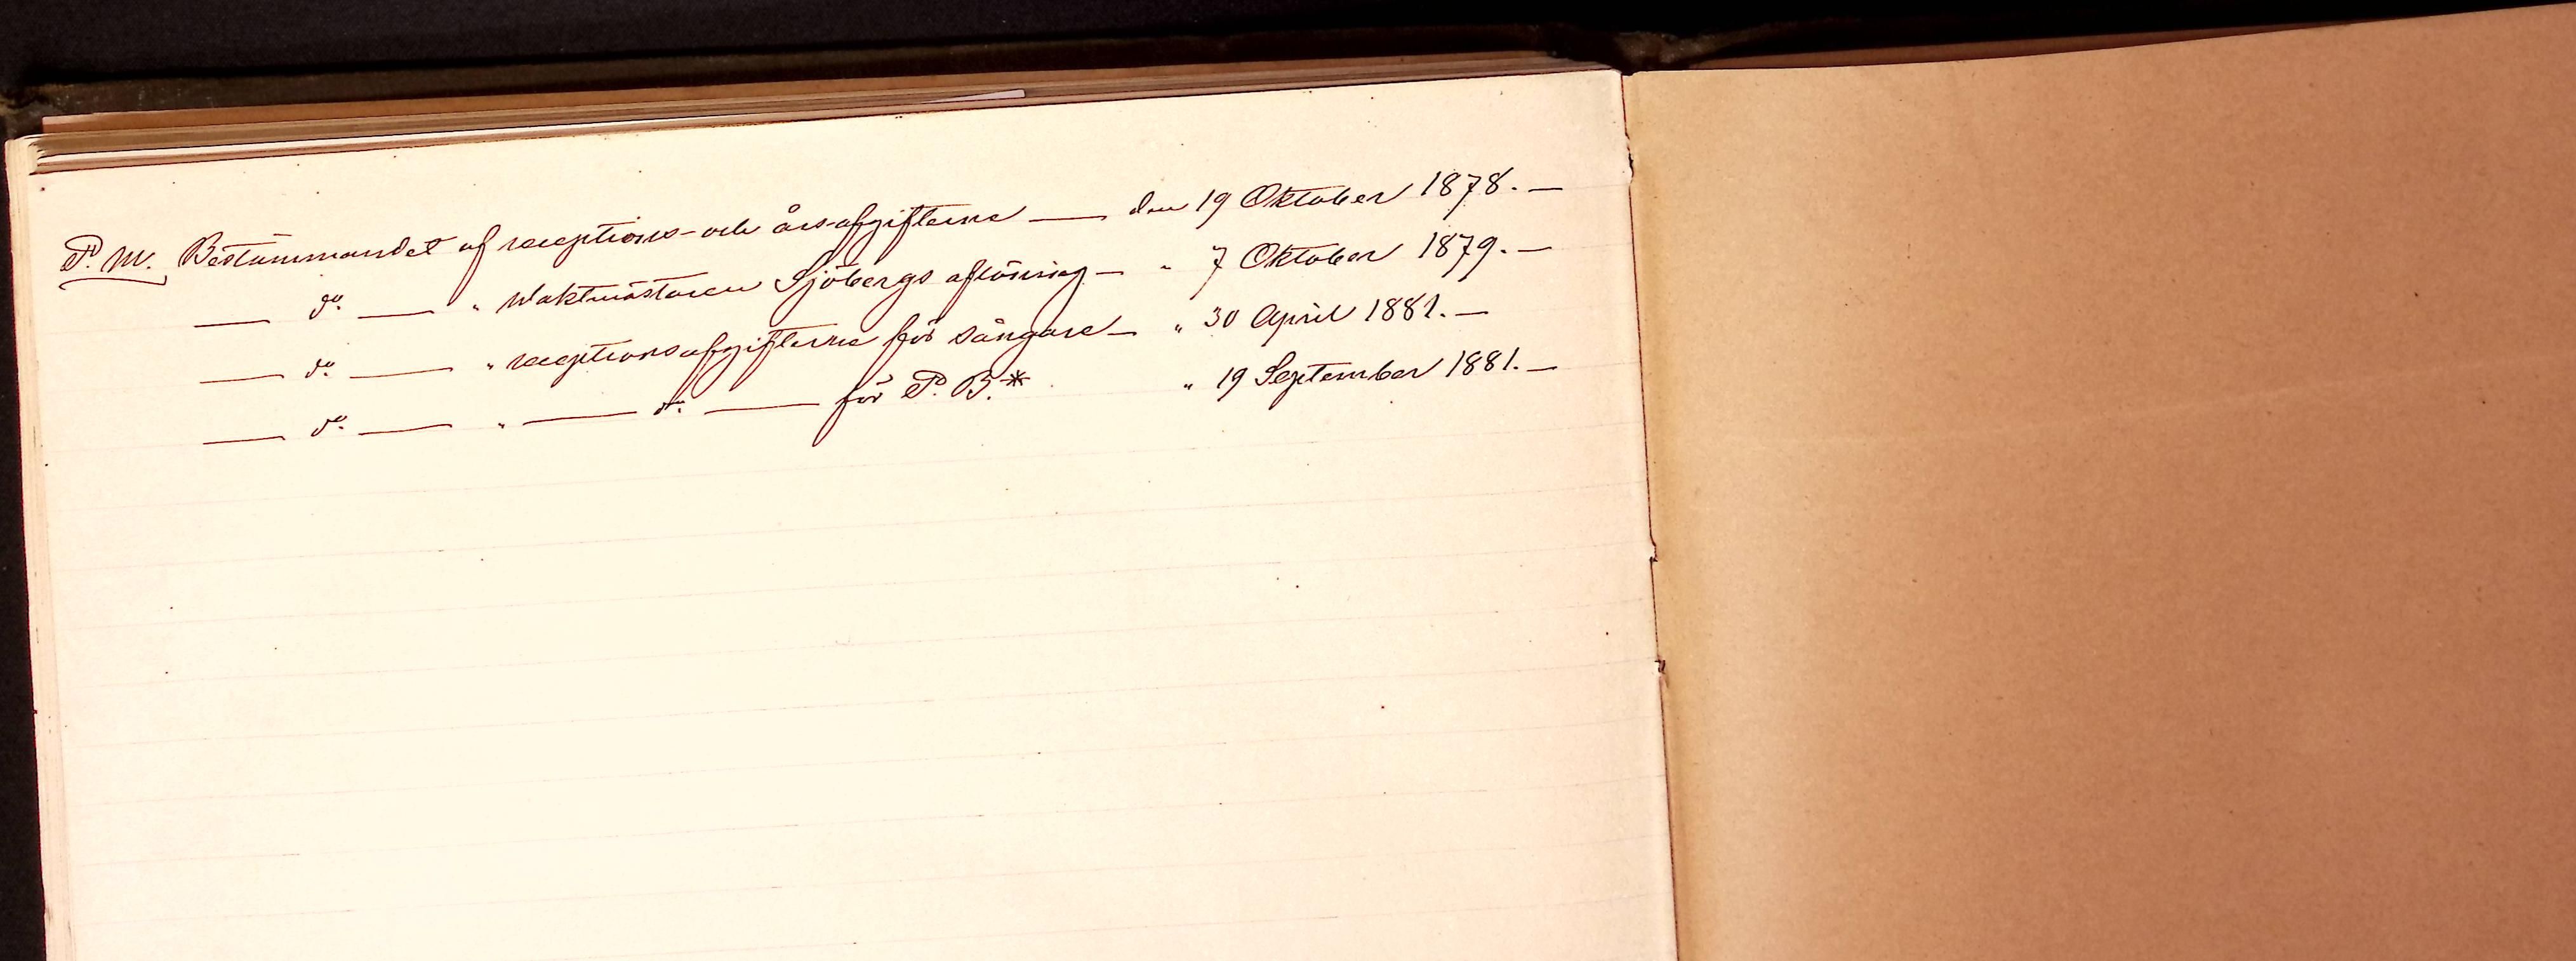 P. M. Bestämmandet af receptions- och års-afgifterne — den 19 Oktober 1878. —
— do — " Waktmästaren Sjöbergs aflöning — " 7 Oktober 1879. —
— do — " receptionsafgifterne för sångare — " 30 April 1881. —
— do — " — do — för P. B.* " 19 September 1881. —